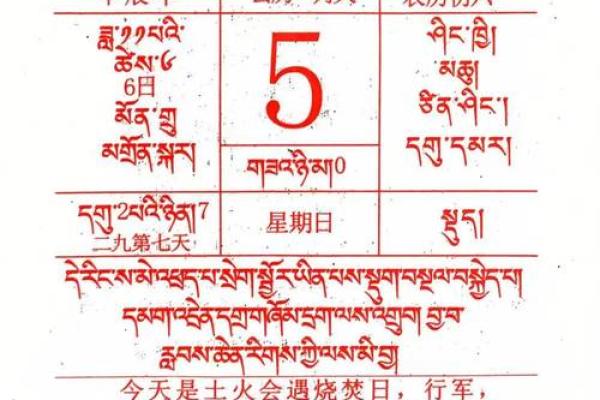 ཟླ་༡༡པའི་
ཚེས་༦
6日
མོན་གྲུ
མགྲོན་སྐར།
5
གཟའ་ཉི་མ།0
ཤིང་ཁྱི།
མཆུ།
ཙིན་ཤིང་།
དགུ་དམར།
དགུ་2པའི་ཉིན།7
二九第七天
星期日
སྡུད།
དེ་རིང་ས་མེ་འཕྲད་པ་སྲེག་སྦྱོར་ཡིན་པས་སྡུག་བསྔལ་བསྐྱེད་པ།
དམག་འདྲེན་དགྲ་གཞོམ་དྲག་ལས་འགྲུག་བྱ་བ་
རླབས་ཆེན་རིགས་ཀྱི་ལས་མི་བྱ།
今天是土火会遇烧焚日，行军，